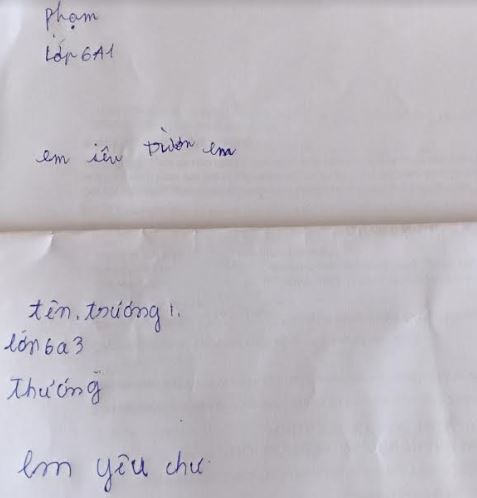 phạm
Lớp 6A1
em iêu trườn em
tên. trướng 1.
lớp 6a3
Thướng
Em yêu chư